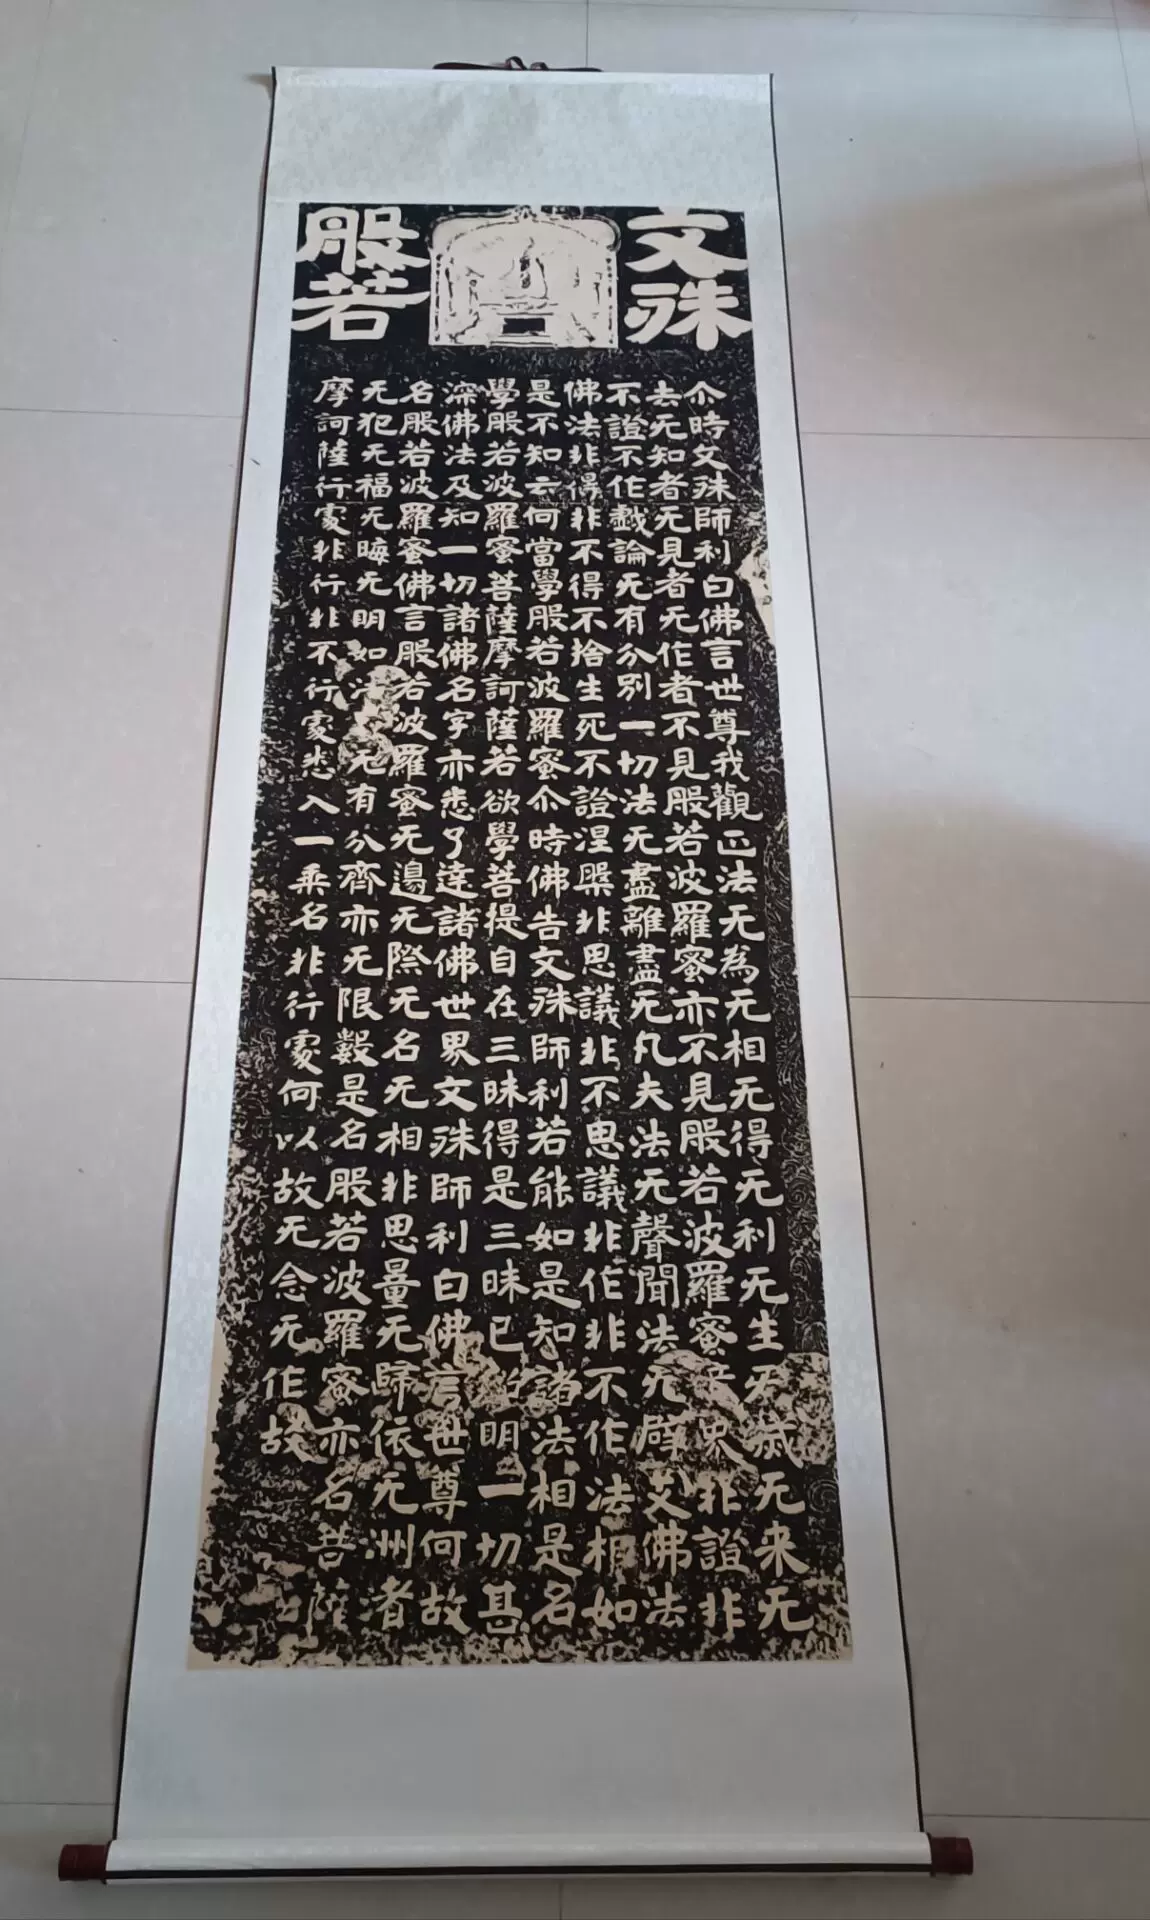 文殊
般若
尒時文殊師利白佛言世尊我觀正法无為无相无得无利无生无滅无来无
去无知者无見者无作者不見般若波羅蜜亦不見般若波羅蜜界非證非
不證不作戲論无有分別一切法无盡離盡无凡夫法无聲聞法无辟支佛法
佛法非得非不得不捨生死不證涅槃非思議非不思議非作非不作法相如
是不知云何當學般若波羅蜜尒時佛告文殊師利若能如是知諸法相是名
學般若波羅蜜菩薩摩訶薩若欲學菩提自在三昧得是三昧已明一切甚
深佛法及知一切諸佛名字亦悉了達諸佛世界文殊師利白佛言世尊何故
名般若波羅蜜佛言般若波羅蜜无邊无際无名无相非思量无歸依无洲者
无犯无福无晦无明如法无有分齊亦无限數是名般若波羅蜜亦名菩薩
摩訶薩行處非行非不行處悉入一乘名非行處何以故无念无作故